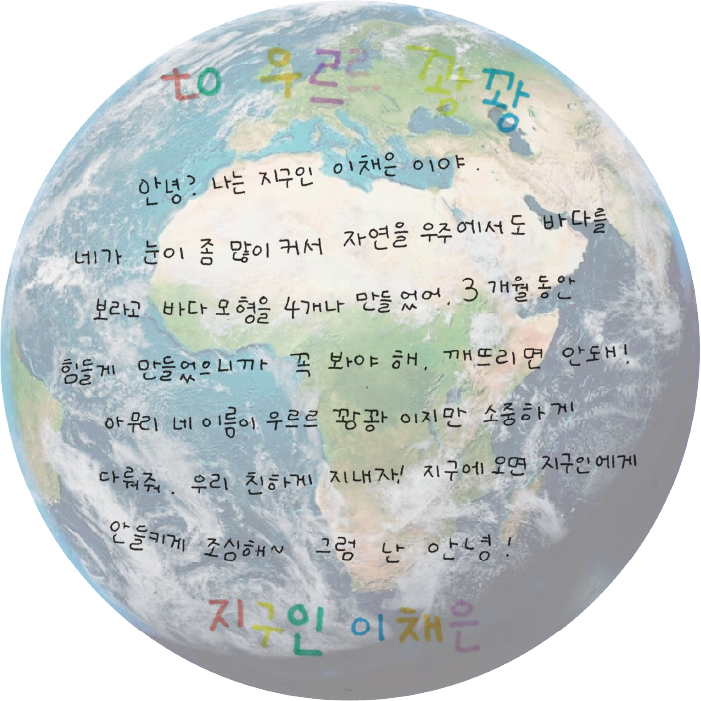 to 우르르 쾅쾅
안녕? 나는 지구인 이채은 이야.
네가 눈이 좀 많이 커서 자연을 우주에서도 바다를
보라고 바다 모형을 4개나 만들었어. 3개월 동안
힘들게 만들었으니까 꼭 봐야 해. 깨뜨리면 안돼!
아무리 네 이름이 우르르 쾅쾅 이지만 소중하게
다뤄줘. 우리 친하게 지내자! 지구에 오면 지구인에게
안들키게 조심해~ 그럼 난 안녕!
지구인 이채은